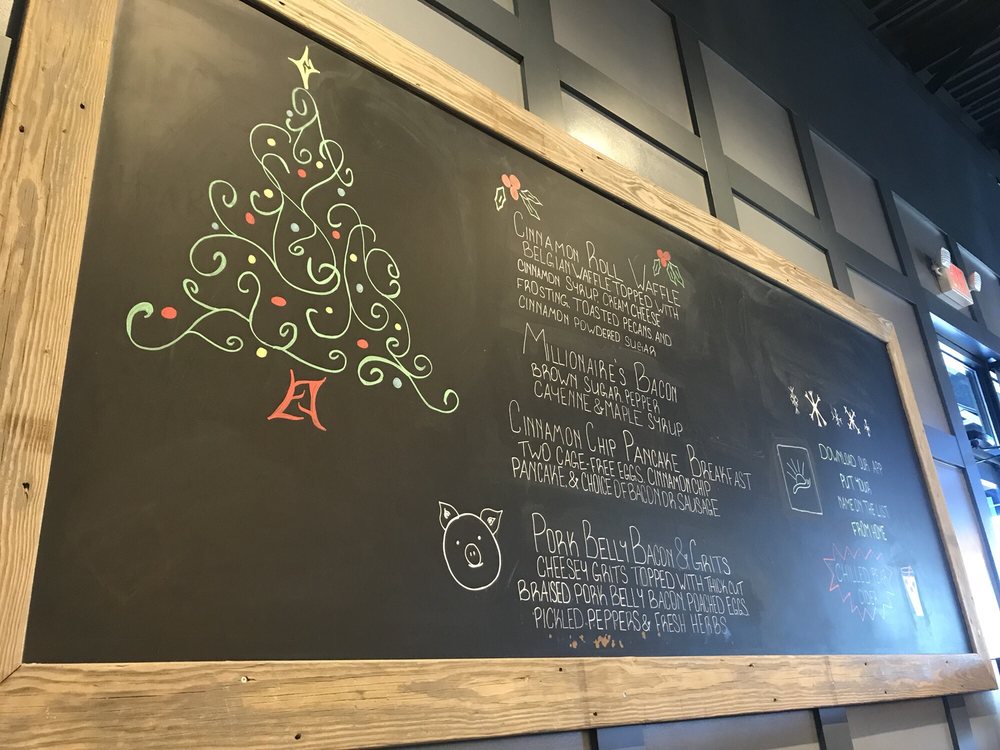 CINNAMON ROLL WAFFLE
BELGIAN WAFFLE TOPPED WITH
CINNAMON SYRUP, CREAM CHEESE
FROSTING, TOASTED PECANS, AND
CINNAMON POWDERED SUGAR
MILLIONAIRE'S BACON
BROWN SUGAR PEPPER
CAYENNE & MAPLE SYRUP
CINNAMON CHIP PANCAKE BREAKFAST
TWO CAGE-FREE EGGS, CINNAMON CHIP
PANCAKE, & CHOICE OF BACON OR SAUSAGE
PORK BELLY BACON & GRITS
CHEESEY GRITS TOPPED WITH THICK CUT
BRAISED PORK BELLY BACON, POACHED EGGS
PICKLED PEPPERS & FRESH HERBS
DOWNLOAD OUR APP
PUT YOUR
NAME ON THE LIST
FROM HOME
CHILLED
CIDER